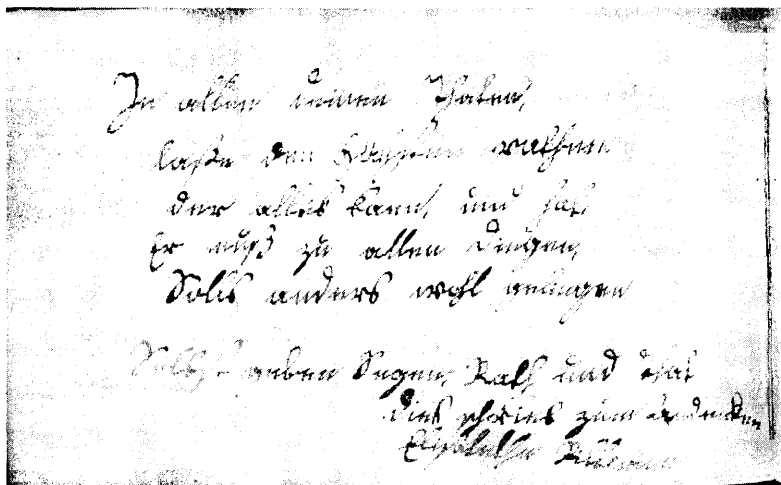 In allen deinen Thaten,
laße den Höchsten rathen
der alles kann, und hat,
Er muß zu allen Dingen,
Solls anders wohl gelingen
Selbst geben Segen, Rath und That
dies schrieb zum Andenken